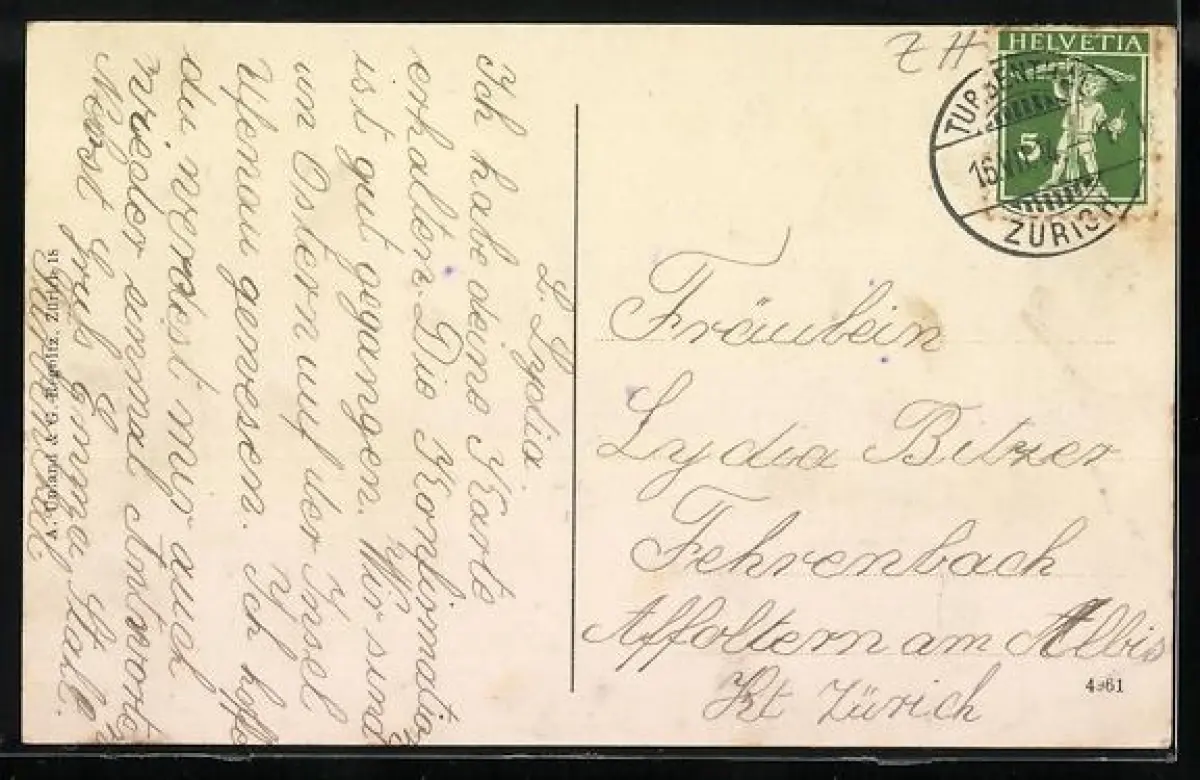 Z H
HELVETIA
5
TURBENTHAL
16.VII.
ZÜRICH
L. Lydia.
Ich habe deine Karte
erhalten. Die Konfirmation
ist gut gegangen. Wir sind
an Ostern auf der Insel
Ufenau gewesen. Ich hoffe
du werdest mir auch
wieder einmal Antworten
Nebst Gruß Emma
Fräulein
Lydia Bitzer
Fehrenbach
Affoltern am Albis
Kt Zürich
4961
A. & G. Zürich 18